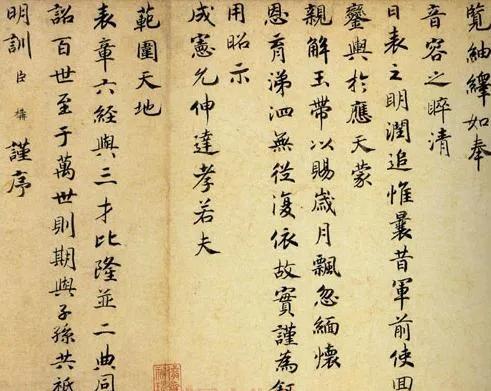 覽紬繹如奉
音容之睟清
日表之明潤追惟曩昔軍前使回
鑾輿於應天蒙
親解玉帶以賜歲月飄忽緬懷
恩育涕泗無從復依故實謹為
用昭示
成憲允伸達孝若夫
範圍天地
表章六經與三才比隆並二典同
詔百世至于萬世則期與子孫共祗
明訓臣構謹序